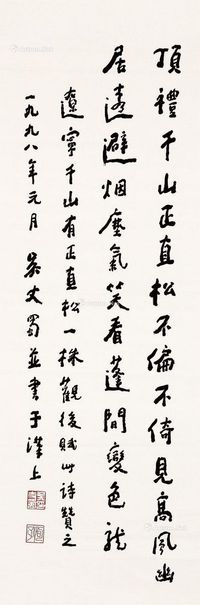 頂禮千山正直松不偏不倚見高風幽
居遠避烟塵氣笑看蓬間變色龍
遼寧千山有正直松一株觀後賦此詩贊之
一九九八年元月 吳丈蜀並書于漢上